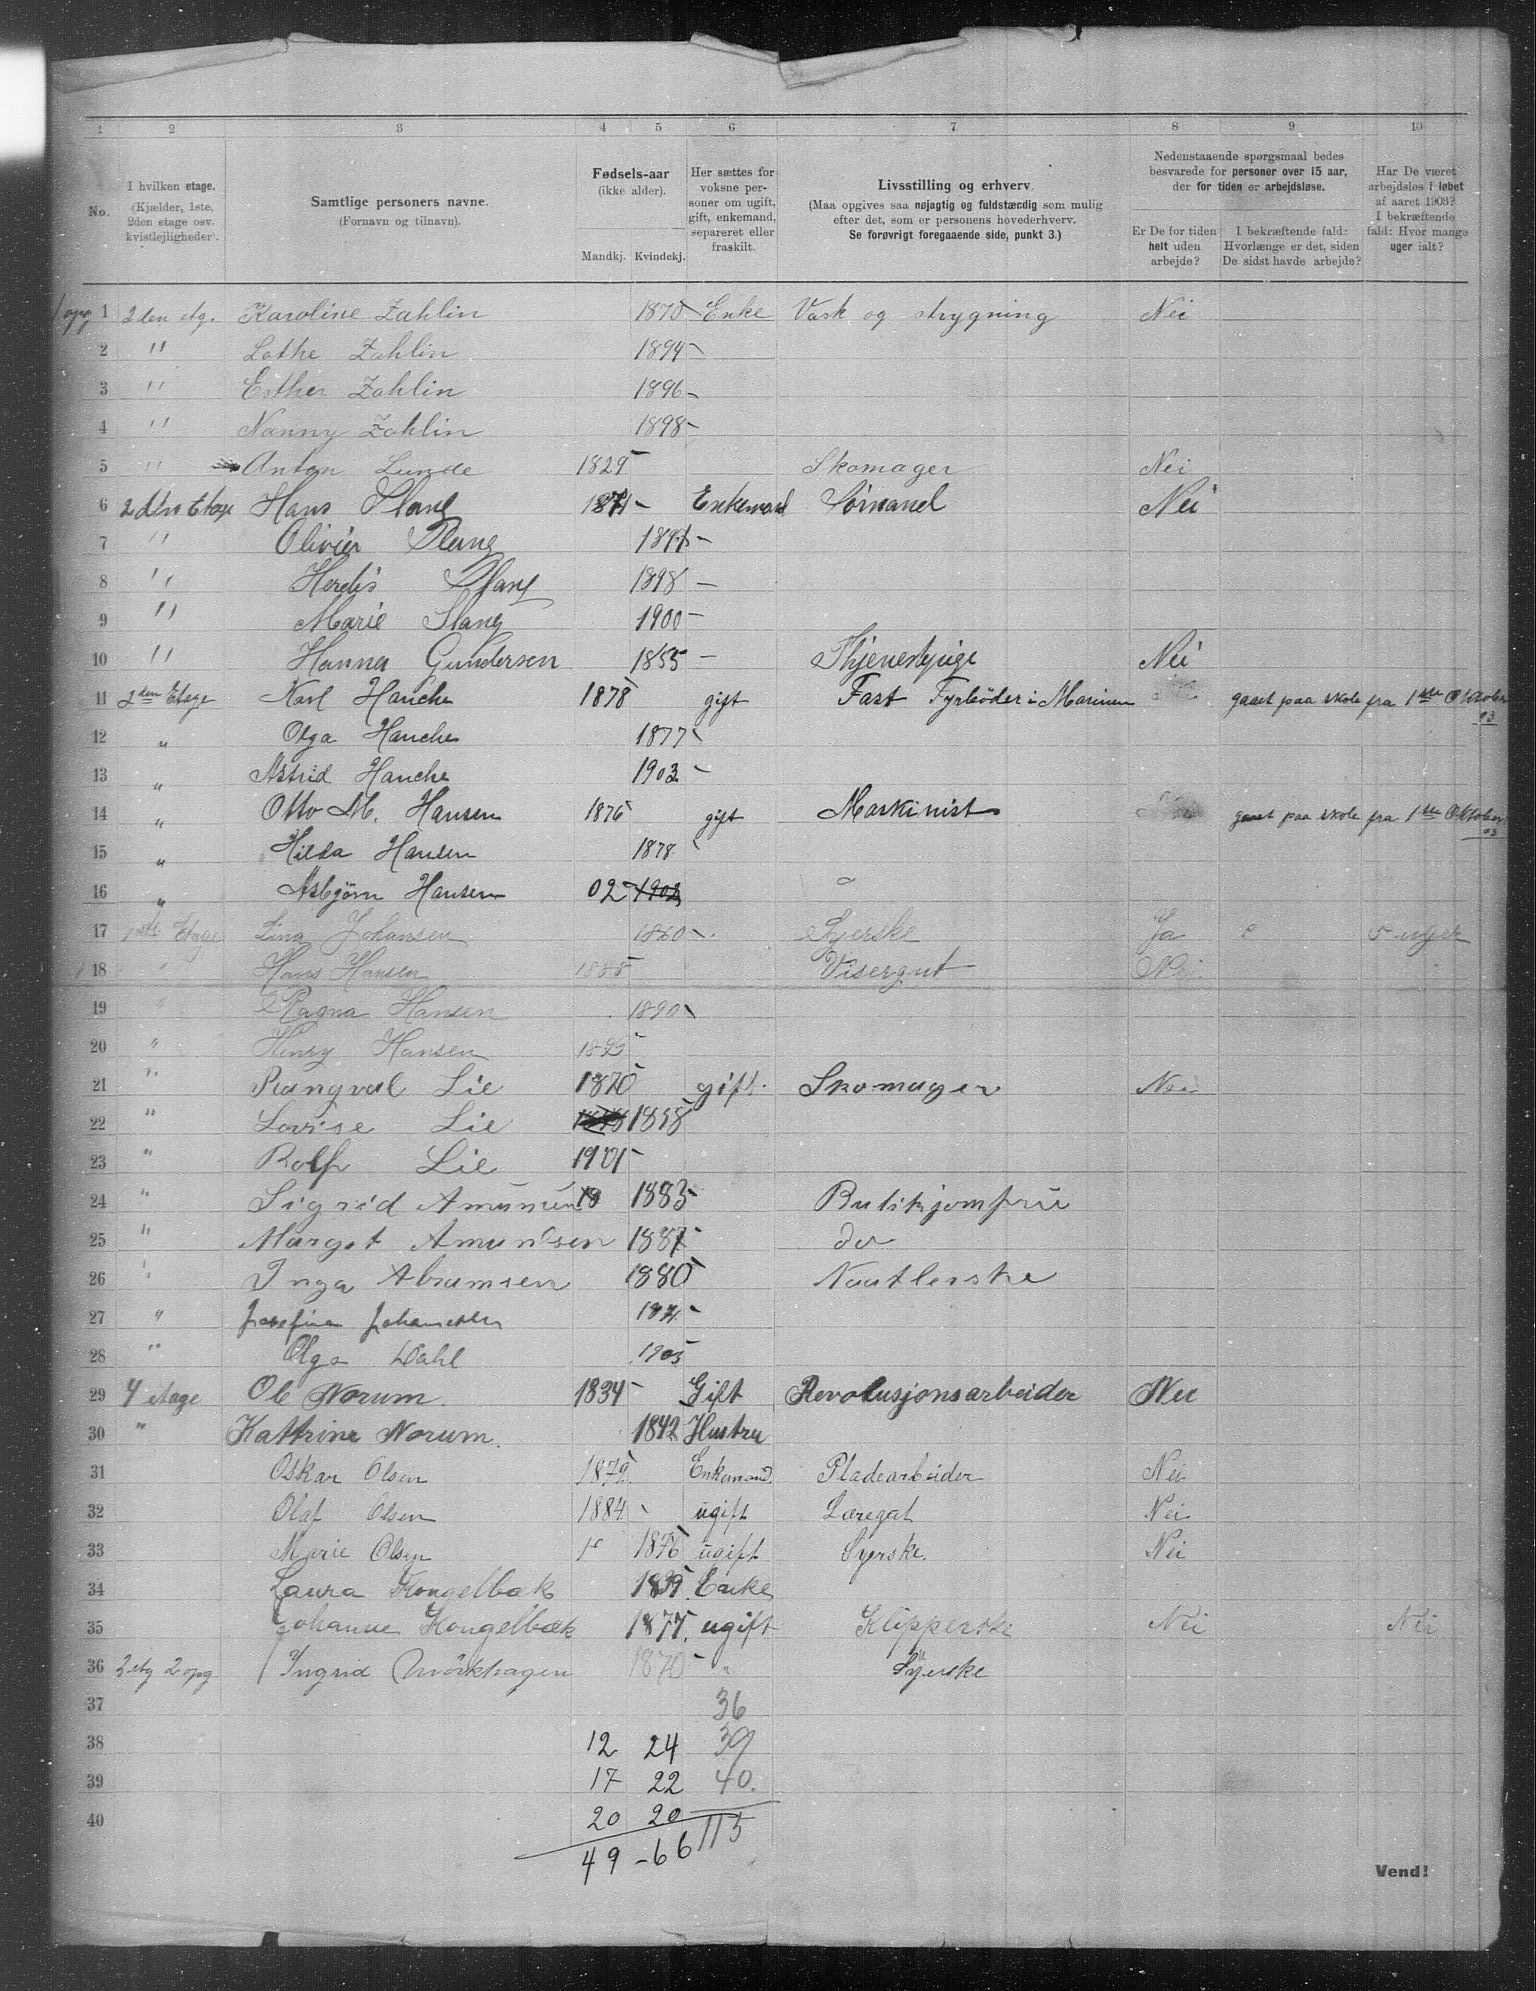 1 2 3 4 5 6 7 8 9 10
No.
I hvilken etage. (Kjælder, 1ste, 2den etage osv. kvistleiligheder).
Samtlige personers navne. (Fornavn og tilnavn).
Fødsels-aar (ikke alder). Mandkj. Kvindekj.
Her sættes for voksne personer om ugift, gift, enkemand, separeret eller fraskilt.
Livsstilling og erhverv. (Maa opgives saa nøjagtig og fuldstændig som mulig efter det, som er personens hovederhverv. Se forøvrigt foregaaende side, punkt 3.)
Nedenstaaende spørgsmaal bedes besvarede for personer over 15 aar, der for tiden er arbejdsløse.
Er De for tiden helt uden arbejde?
I bekræftende fald: Hvorlænge er det, siden De sidst havde arbejde?
Har De været arbejdsløs i løbet af aaret 1903? I bekræftende fald: Hvor mange uger ialt?
1 opg 1 2den etg. Karoline Zahlin 1870 Enke Vask og strygning Nei
2 " Lothe Zahlin 1894
3 " Esther Zahlin 1896
4 " Nanny Zahlin 1898
5 " Anton Lunde 1829 Skomager Nei
6 2den Etage Hans Slang 1871 Enkemand Sømand Nei
7 " Olivier Slang 1897
8 " Herdis Slang 1898
9 " Marie Slang 1900
10 " Hanna Gundersen 1855 Thjenestpige Nei
11 2den Etage Karl Hanche 1878 gift Fast Fyrbøder i Marinen gaaet paa skole fra 1ste Oktober 03
12 " Olga Hanche 1877
13 " Astrid Hanche 1903
14 " Otto M. Hansen 1876 gift Maskinist gaaet paa skole fra 1ste Oktober 03
15 " Hilda Hansen 1878
16 " Asbjørn Hansen 02 1902
17 1ste Etage Lina Johansen 1860 Syerske Ja uger
18 " Hans Hansen 1888 Visergut Nei
19 " Ragna Hansen 1890
20 " Henry Hansen 1895
21 " Rangval Lie 1870 gift. Skomager Nei
22 " Lovise Lie 1858
23 " Rolf Lie 1901
24 " Sigrid Amunsen 18 1883 Butikjomfru
25 " Margot Amundsen 1887 do
26 " Inga Abramsen 1880 Naatlerske
27 " Josefine Johannesen 1871
28 " Olga Dahl 1903
29 4 etage Ole Norum. 1834 Gift Revolusjonsarbeider Nei
30 " Kattrine Norum. 1842 Hustru
31 Oskar Olsen 1879. Enkemand. Pladearbeider Nei
32 Olaf Olsen 1884 ugift Læregut Nei
33 Marie Olsen 1876 ugift Syerske. Nei
34 Laura Kongelbæk 1839. Enke
35 Johanne Kongelbæk 1877. ugift Klipperske Nei Nei
36 2 etg 2 opg Ingrid Mörkhagen 1870 " Syerske
37 36
38 12 24 39
39 17 22 40.
40 20 20 115
49 - 66
Vend!